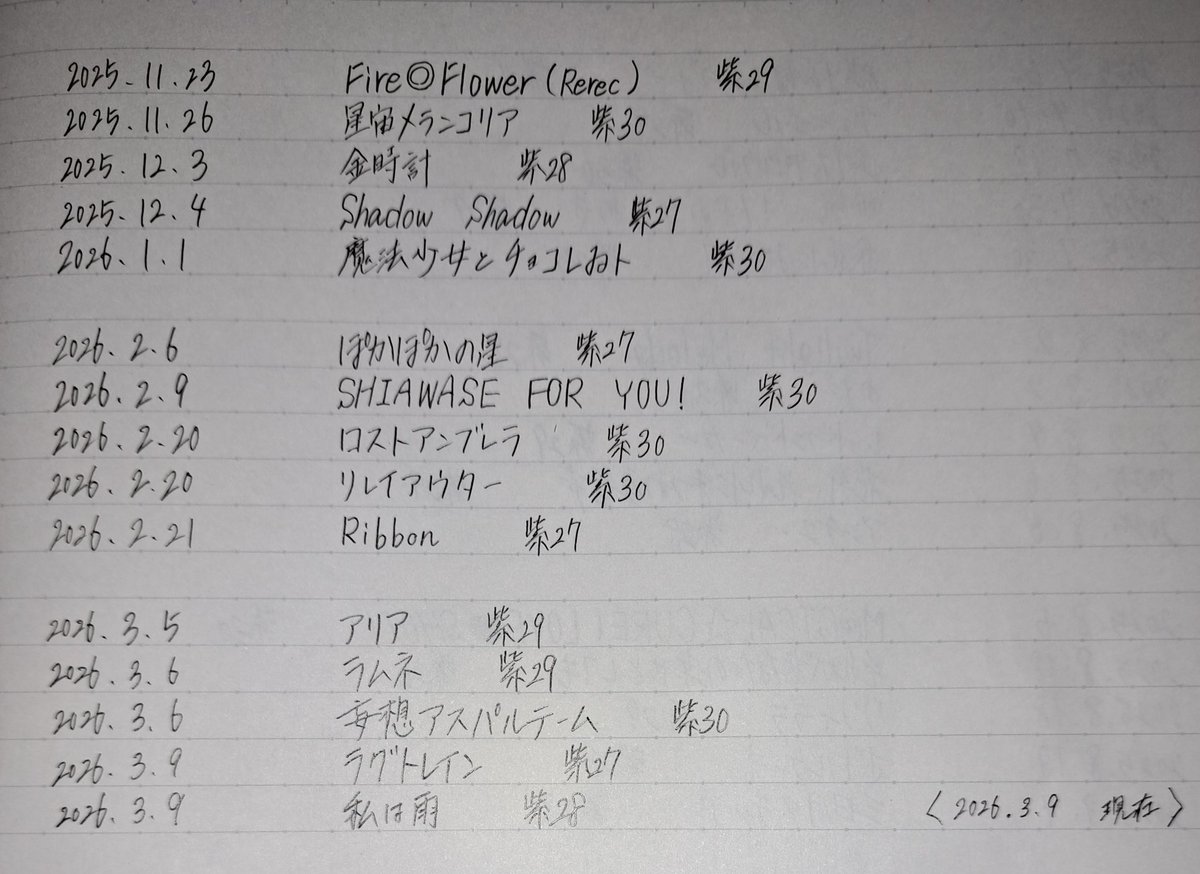 2025.11.23 Fire◎Flower (Rerec) 紫29
2025.11.26 星宙メランコリア 紫30
2025.12.3 金時計 紫28
2025.12.4 Shadow Shadow 紫27
2026.1.1 魔法少女とチョコレゐト 紫30
2026.2.6 ぽかぽかの星 紫27
2026.2.9 SHIAWASE FOR YOU! 紫30
2026.2.20 ロストアンブレラ 紫30
2026.2.20 リレイアウター 紫30
2026.2.21 Ribbon 紫27
2026.3.5 アリア 紫29
2026.3.6 ラムネ 紫29
2026.3.6 妄想アスパルテーム 紫30
2026.3.9 ラグトレイン 紫27
2026.3.9 私は雨 紫28 〈2026.3.9 現在〉